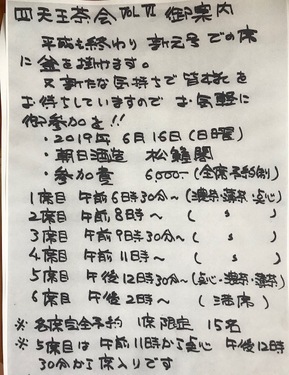 四天王茶会 VOL VI 御案内
平成も終わり 新元号での席
に釜を掛けます。
又新たな気持ちで皆様を
お待ちしていますので お気軽に
御参加を!!
・2019年 6月16日(日曜)
・朝日酒造 松籟閣
・参加費 6000-(全席予約制)
1席目 午前6時30分~(濃茶・薄茶・点心)
2席目 午前8時~ ( 〃 )
3席目 午前9時30分~ ( 〃 )
4席目 午前11時~ ( 〃 )
5席目 午後12時30分~(点心・濃茶・薄茶)
6席目 午後2時~ (満席)
※ 各席完全予約 1席限定 15名
※ 5席目は午前11時から点心 午後12時
30分から席入りです